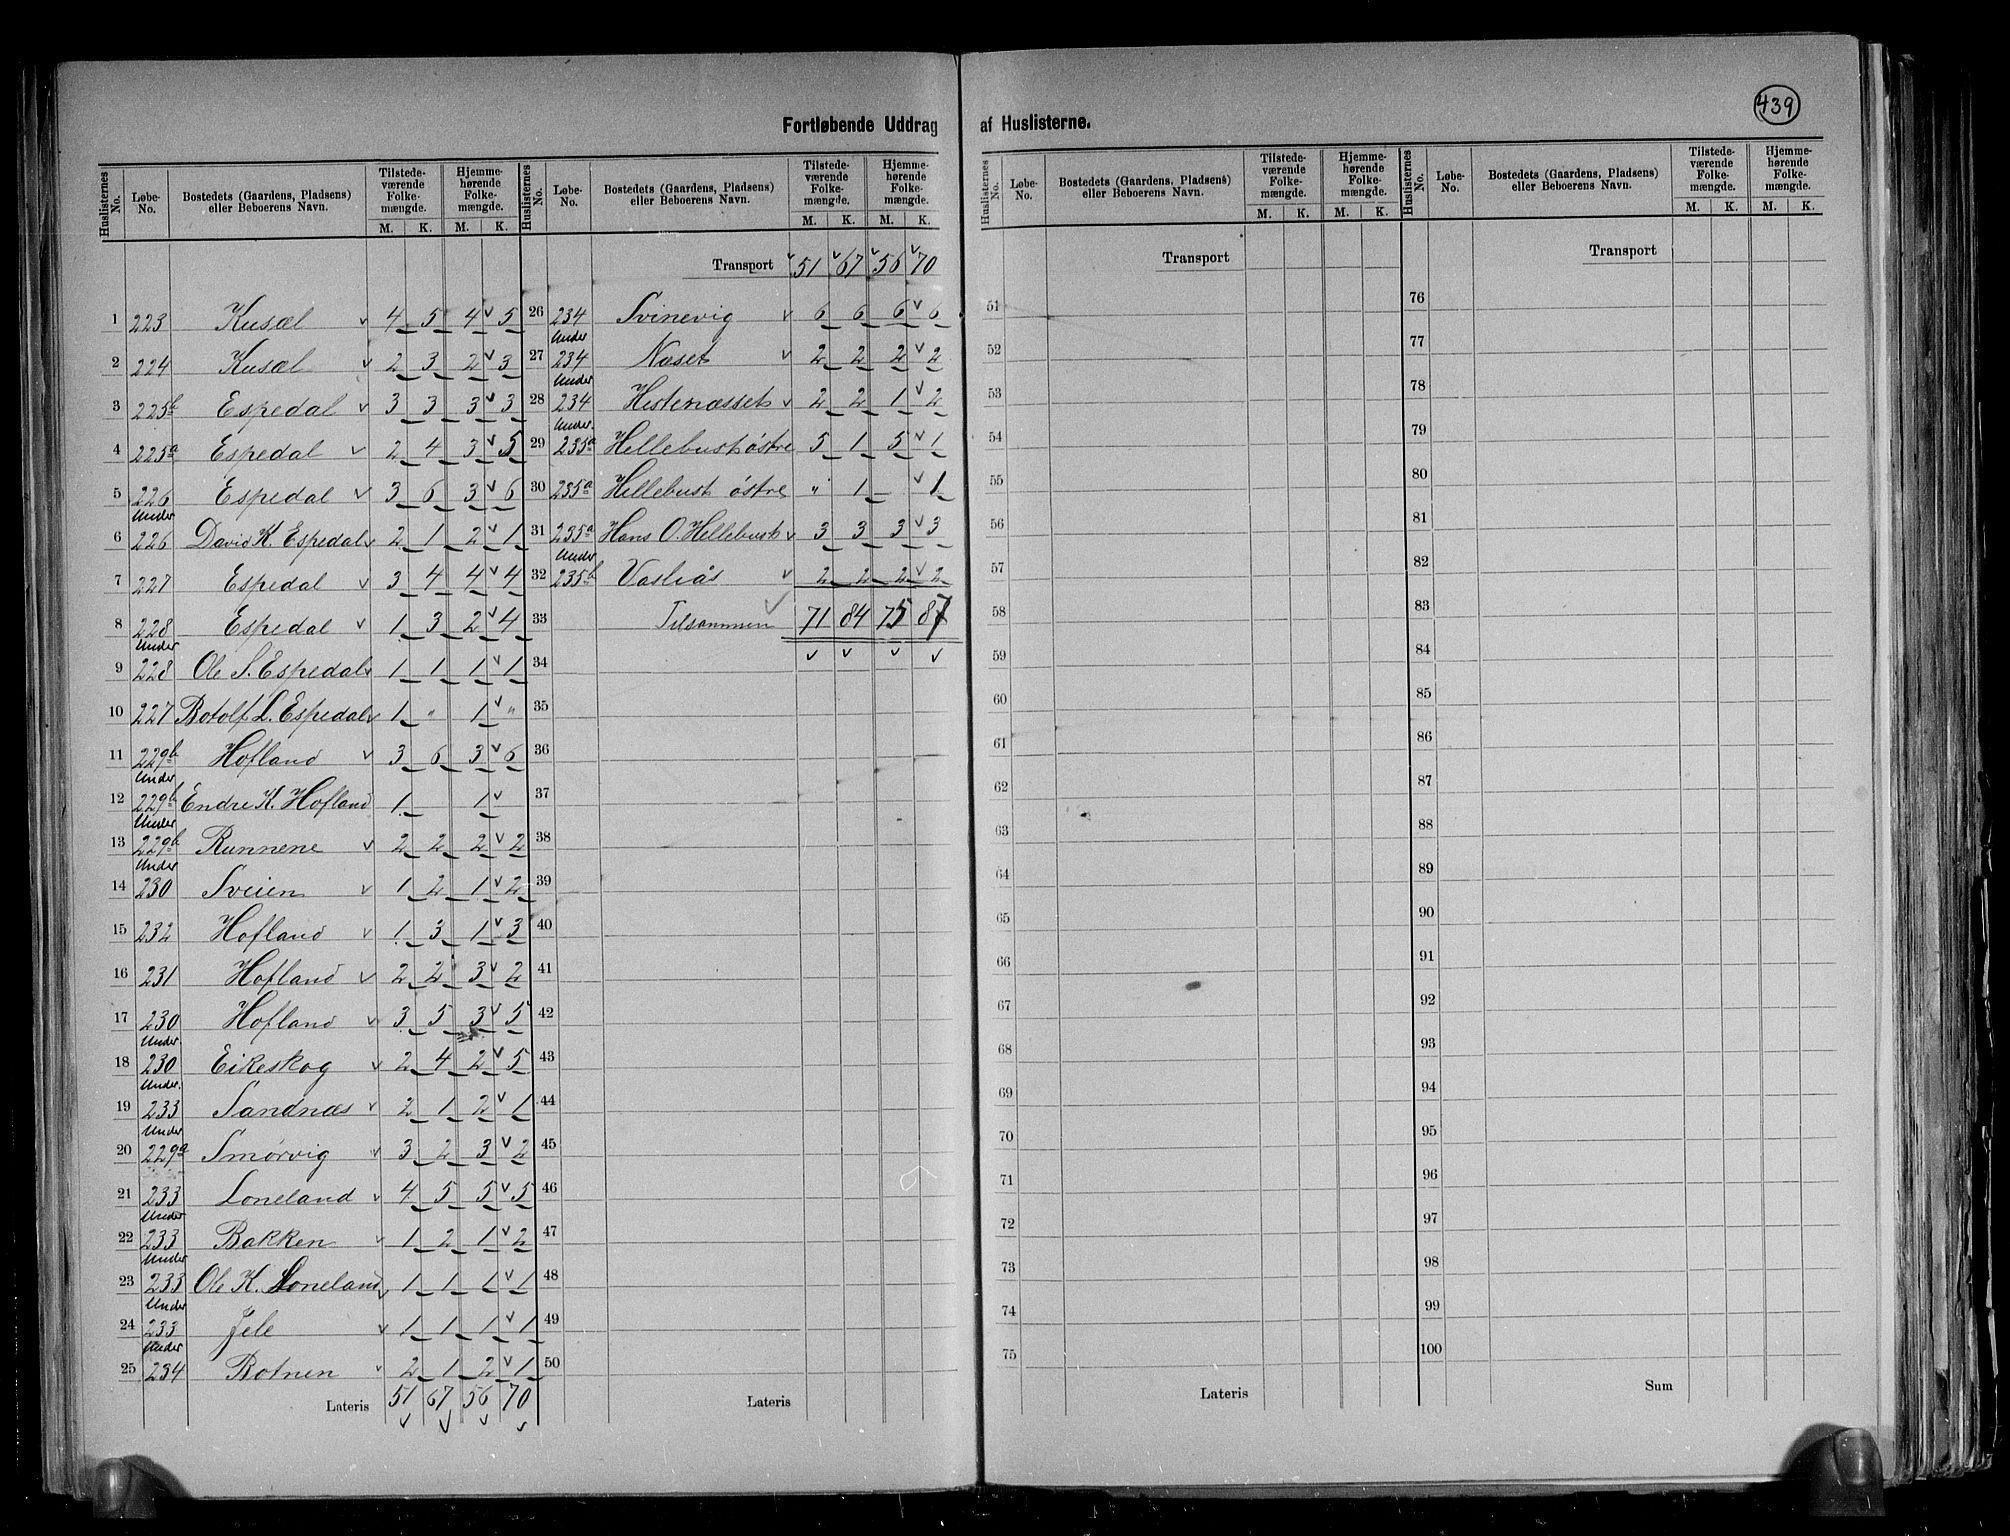 439
Fortløbende Uddrag af Huslisterne.
Huslisternes No. Løbe-No. Bostedets (Gaardens, Pladsens) eller Beboerens Navn. Tilstede-værende Folke-mængde. M. K. Hjemme-hørende Folke-mængde. M. K.
1 223 Kusæl v 4 5 4 v 5
2 224 Kusæl v 2 3 2 v 3
3 225b Espedal v 3 3 3 v 3
4 225a Espedal v 2 4 3 v 5
5 226 Espedal v 3 6 3 v 6
6 Under 226 David K. Espedal v 2 1 2 v 1
7 227 Espedal v 3 4 4 v 4
8 228 Espedal v 1 3 2 v 4
9 Under 228 Ole S. Espedal v 1 1 1 v 1
10 227 Botolf L. Espedal v 1 " 1 v "
11 229b Hofland v 3 6 3 v 6
12 Under 229b Endre K. Hofland 1 1 v
13 Under 229b Runnene v 2 2 2 v 2
14 Under 230 Sveien v 1 2 1 v 2
15 232 Hofland v 1 3 1 v 3
16 231 Hofland v 2 2 3 v 2
17 230 Hofland v 3 5 3 v 5
18 Under 230 Eikeskog v 2 4 2 v 5
19 Under 233 Sandnæs v 2 1 2 v 1
20 Under 229a Smørvig v 3 2 3 v 2
21 233 Loneland v 4 5 5 v 5
22 Under 233 Bakken v 1 2 1 v 2
23 Under 233 Ole K. Loneland v 1 1 1 v 1
24 Under 233 Jele v 1 1 1 v 1
25 Under 234 Botnen v 2 1 2 v 1
Lateris 51 67 56 70
Huslisternes No. Løbe-No. Bostedets (Gaardens, Pladsens) eller Beboerens Navn. Tilstede-værende Folke-mængde. M. K. Hjemme-hørende Folke-mængde. M. K.
Transport 51 67 56 70
26 234 Svinevig v 6 6 6 v 6
27 Under 234 Naset v 2 2 2 v 2
28 Under 234 Hestenæsset v 2 2 1 v 2
29 Under 235a Hellebust østre 5 1 5 v 1
30 235a Hellebust østre " 1 v 1
31 235a Hans O. Hellebust v 3 3 3 v 3
32 Under 235b Vasliås v 2 2 2 v 2
33 Tilsammen v 71 84 75 87
34
35
36
37
38
39
40
41
42
43
44
45
46
47
48
49
50
Lateris
Huslisternes No. Løbe-No. Bostedets (Gaardens, Pladsens) eller Beboerens Navn. Tilstede-værende Folke-mængde. M. K. Hjemme-hørende Folke-mængde. M. K.
Transport
51
52
53
54
55
56
57
58
59
60
61
62
63
64
65
66
67
68
69
70
71
72
73
74
75
Lateris
Huslisternes No. Løbe-No. Bostedets (Gaardens, Pladsens) eller Beboerens Navn. Tilstede-værende Folke-mængde. M. K. Hjemme-hørende Folke-mængde. M. K.
Transport
76
77
78
79
80
81
82
83
84
85
86
87
88
89
90
91
92
93
94
95
96
97
98
99
100
Sum